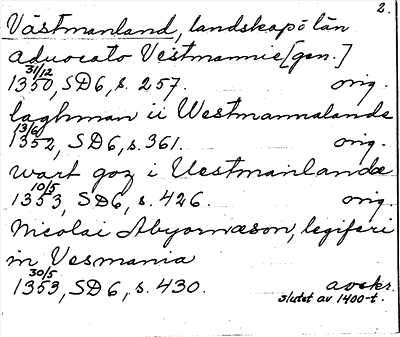 2.
Västmanland, landskap o län
advocato Vestmannie [gen.]
31/12
1350, SD6, s. 257. orig.
laghman ii Westmannalande
13/6
1352, SD6, s. 361. orig.
wart goz i Uestmanlandæ
10/5
1353, SD6, s. 426. orig.
Nicolai Abyornæson, legiferi
in Vesmania
30/5
1353, SD6, s. 430. avskr.
slutet av 1400-t.